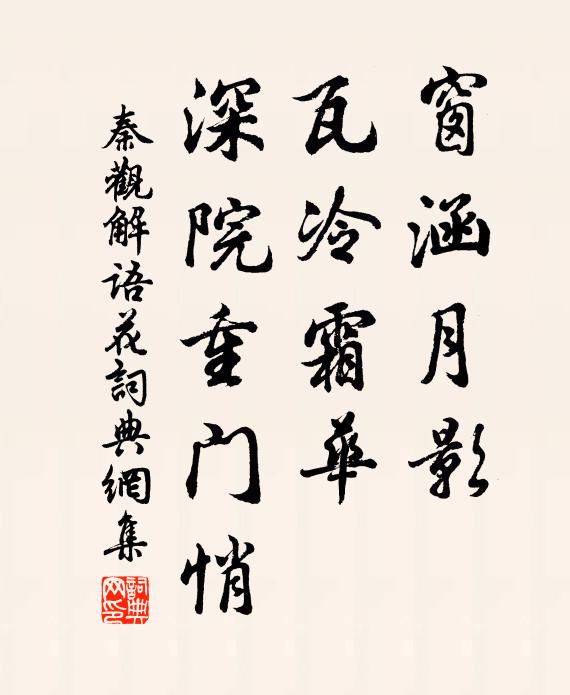 窗涵月影
瓦冷霜華
深院重门悄
秦觀解語花詞典網集
詞典網印